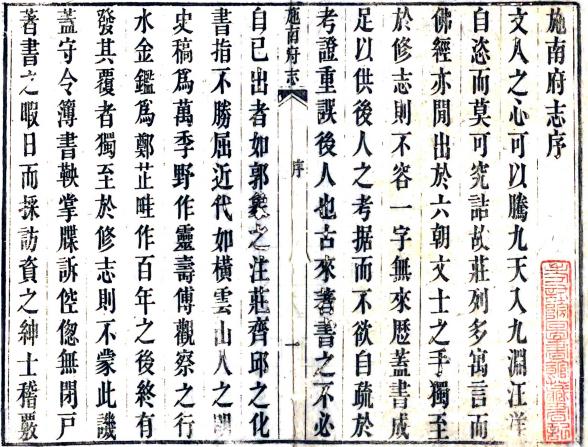 施南府志序
文人之心可以騰九天入九淵汪洋
自恣而莫可究詰故莊列多寓言而
佛經亦閒出於六朝文士之手獨至
於修志則不容一字無來歴蓋書成
足以供後人之考据而不欲自疏於
考證重誤後人也古來著書之不必
施南府志
序
一
自己出者如郭象之注莊齊邱之化
書指不勝屈近代如橫雲山人之明
史稿為萬季野作靈壽傅觀察之行
水金鑑為鄭芷畦作百年之後終有
發其覆者獨至於修志則不蒙此譏
蓋守令簿書鞅掌牒訴倥傯無閉戸
著書之暇日而採訪資之紳士稽覈